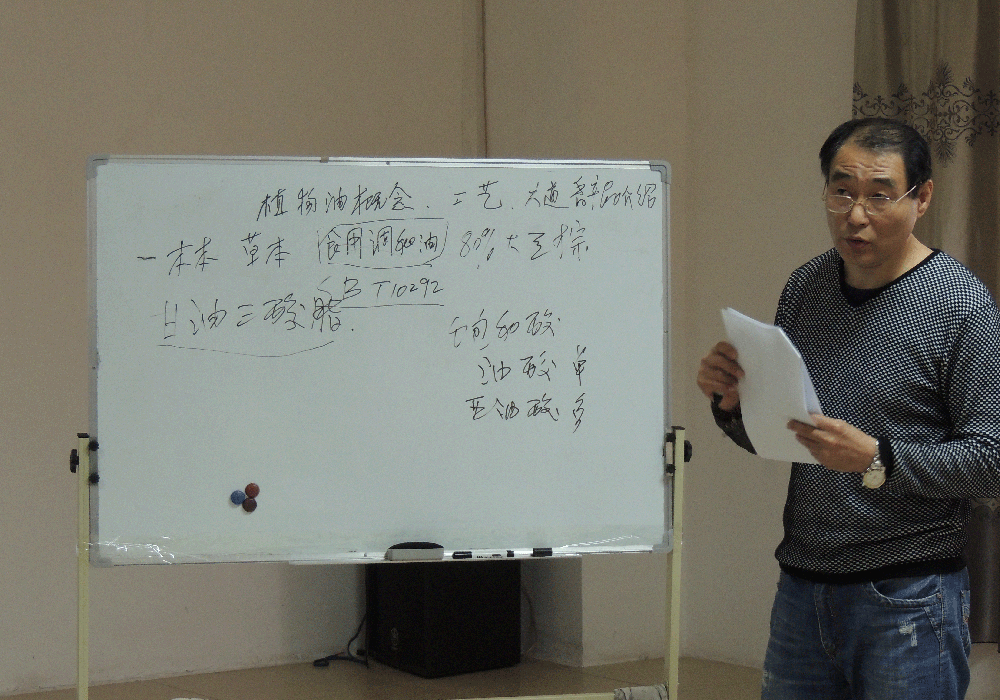 植物油概念.工艺.大道香产品介绍
一木本 草本 食用调和油 80% 大豆 棕
SB T10292
甘油三酸脂.
饱和酸
油酸 单
亚油酸 多